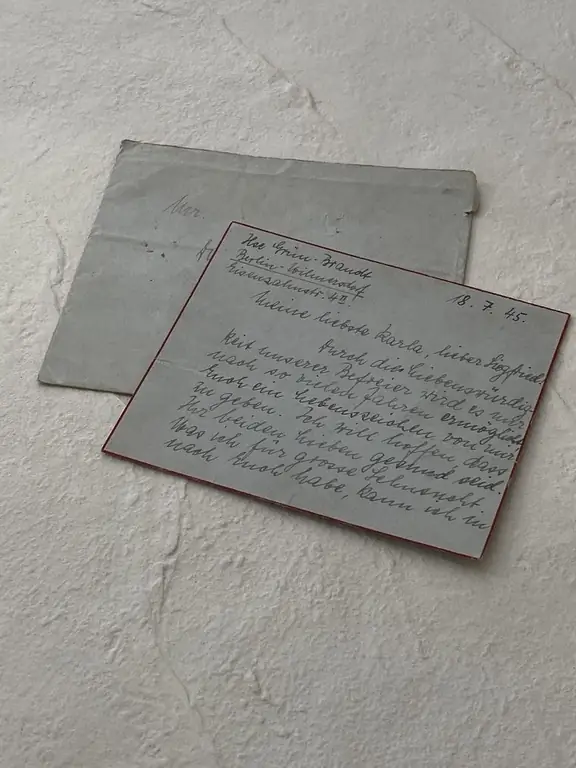 Ilse Grün-Brandt
Berlin-Wilmersdorf
Eisenzahnstr. 4 II
18. 7. 45.
Meine liebste Karla, lieber Siegfried,
Durch die Liebenswürdig
keit unserer Befreier wird es mir
nach so vielen Jahren ermöglicht
Euch ein Lebenszeichen von mir
zu geben. Ich will hoffen, dass
Ihr beiden Lieben gesund seid.
Was ich für grosse Sehnsucht
nach Euch habe, kann ich in